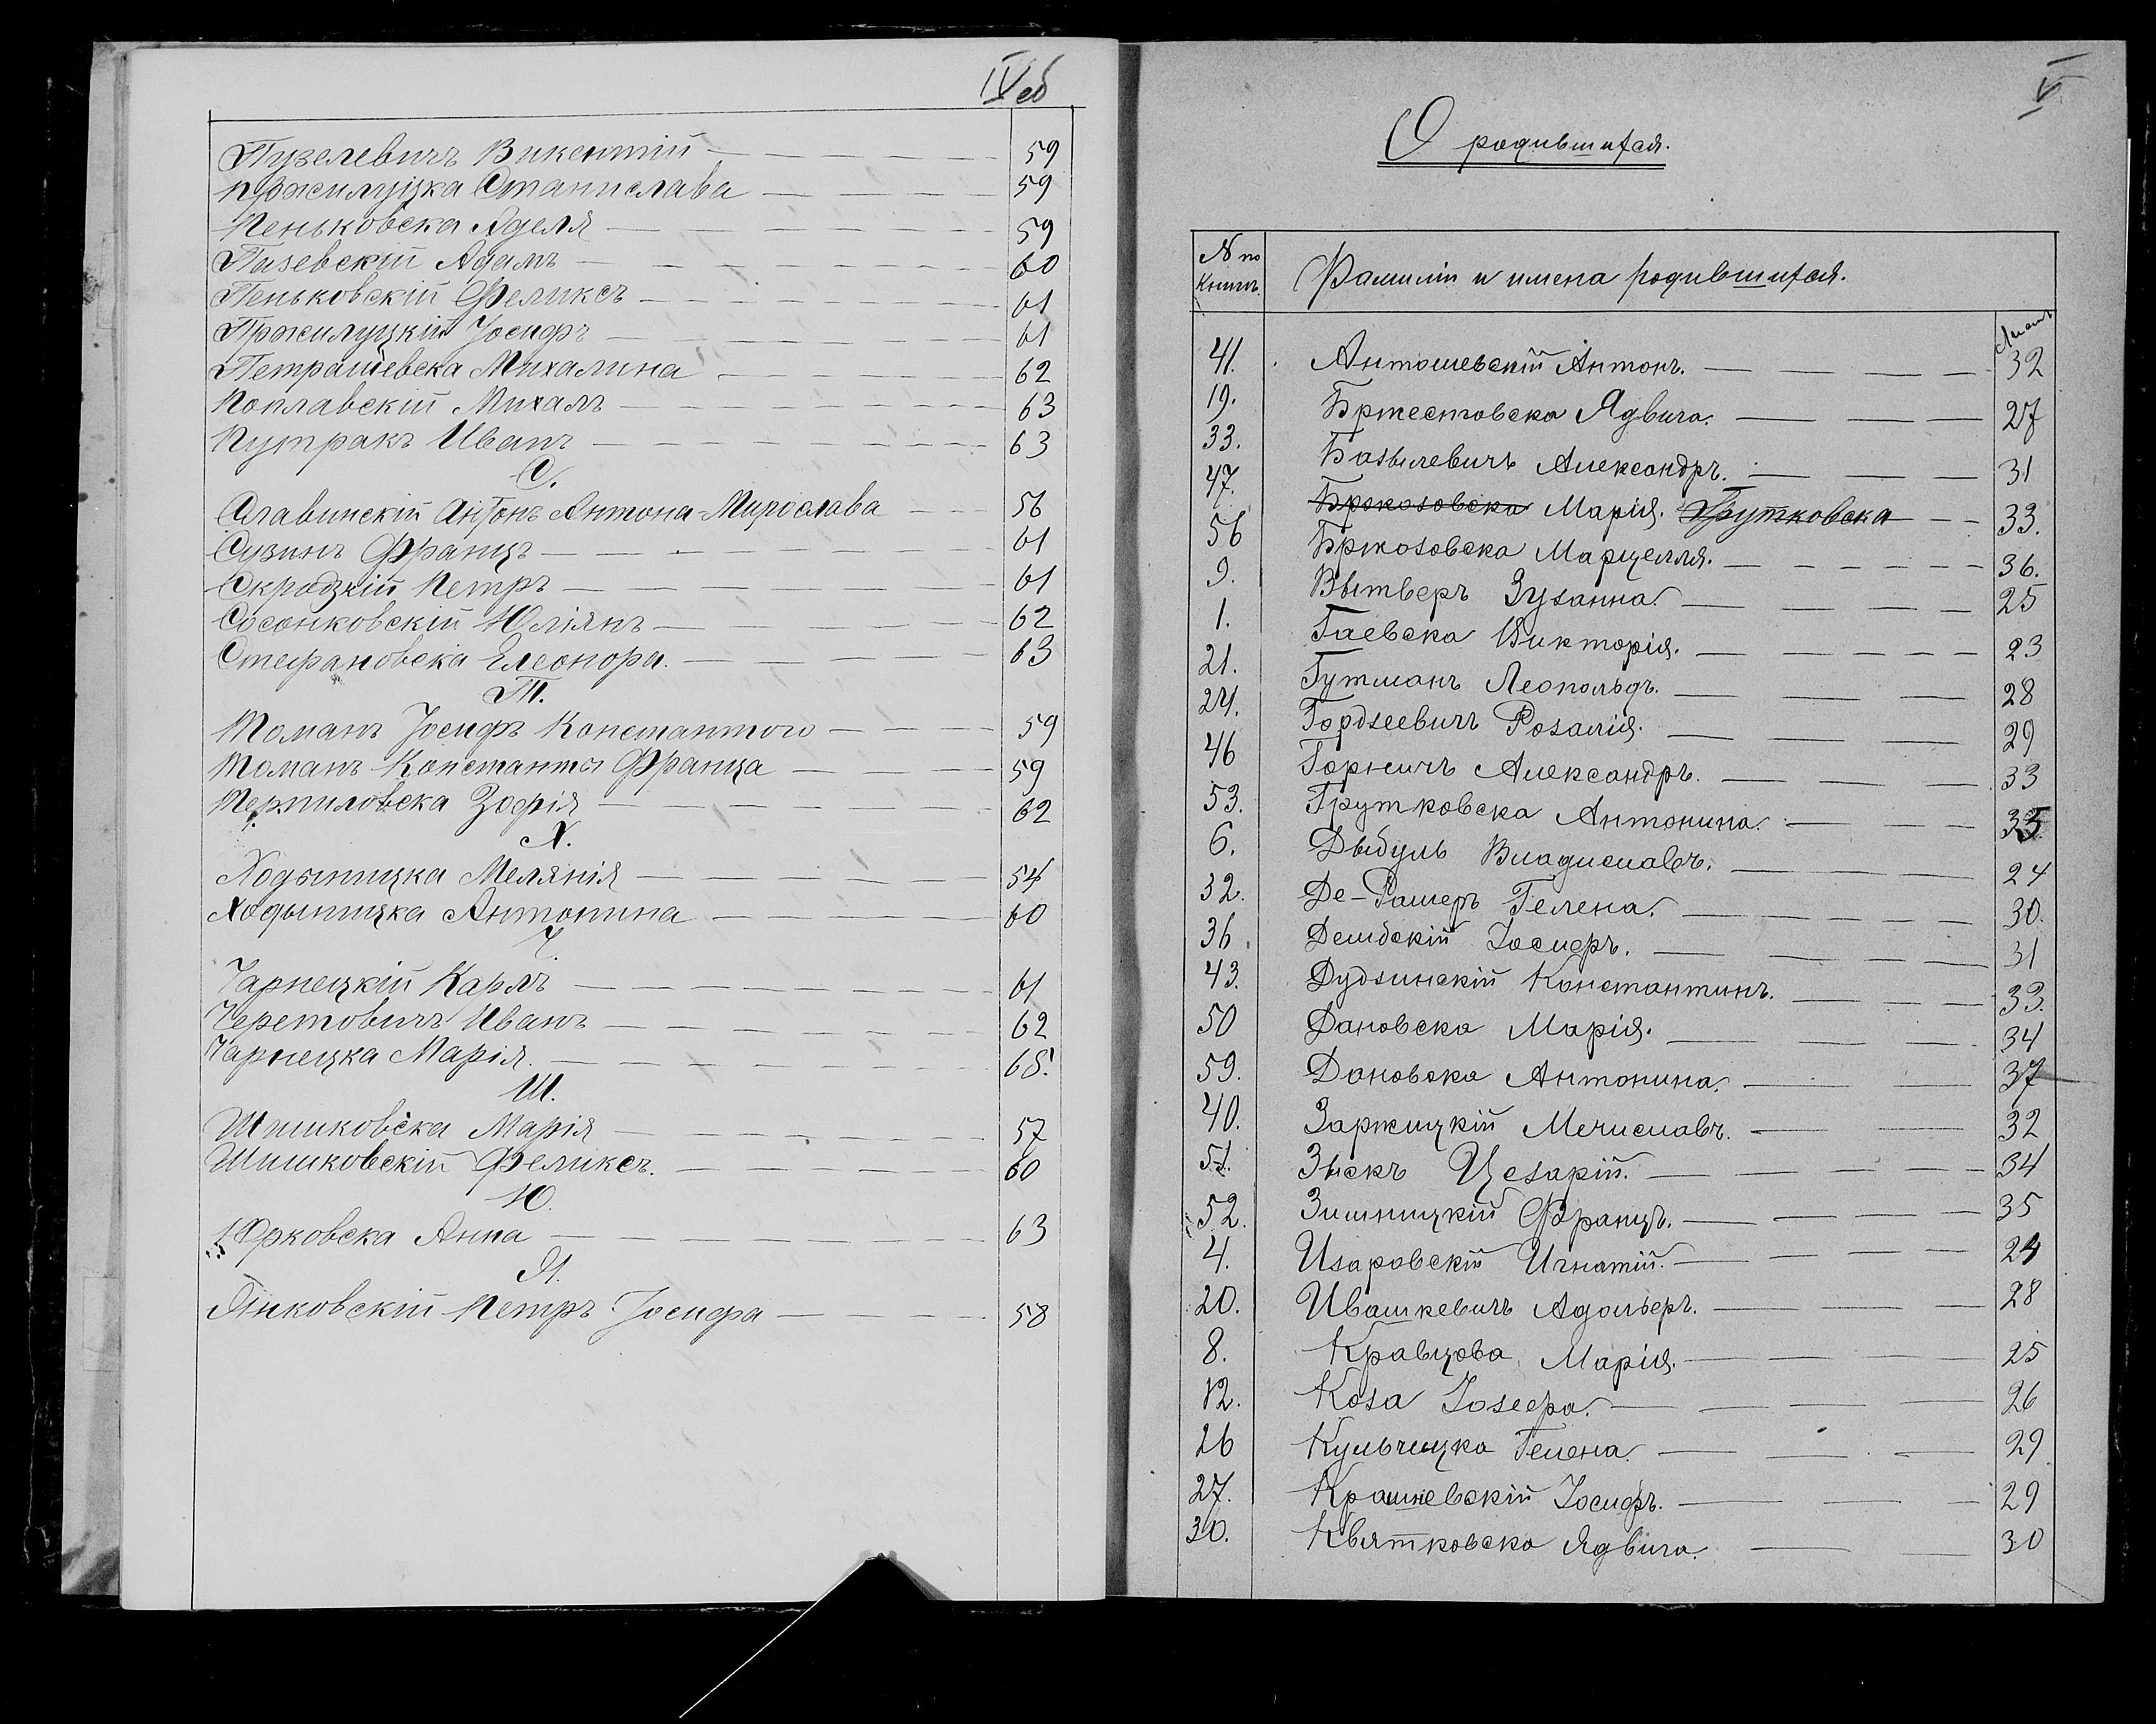 IV об
Пузелевичъ Викентій — 59
Пржилуцка Станислава — 59
Пеньковска Аделя — 59
Пазевскій Адамъ — 60
Пеньковскій Феликсъ — 61
Пржилуцкій Іосифъ — 61
Петрашевска Михалина — 62
Поплавскій Михалъ — 63
Путракъ Иванъ — 63
С.
Славинскій Антонъ Антона-Мирослава — 56
Сузинъ Францъ — 61
Скродзкій Петръ — 61
Сосонковскій Юліянъ — 62
Стефановска Елеонора. — 63
Т.
Томанъ Іосифъ Константого — 59
Томанъ Константы Франца — 59
Терпиловска Зофія — 62
Х.
Ходыницка Мелянія — 54
Ходыницка Антонина — 60
Ч.
Чарнецкій Карлъ — 61
Черетовичъ Иванъ — 62
Чарнецка Марія. — 65.
Ш.
Шишковска Марія — 57
Шишковскій Феликсъ. — 60
Ю.
Юрковска Анна — 63
Я.
Янковскій Петръ Іосифа — 58
V
О родившихся.
N по книгѣ. Фамиліи и имена родившихся. Листъ
41. Антошевскій Антонъ. — 32
19. Бржестовска Ядвига. — 27
33. Базылевичъ Александръ. — 31
47. Бржозовска Марія. Грутковска — 33.
56 Бржозовска Марцелля. — 36.
9. Вытверъ Зузанна. — 25
1. Гаевска Викторія. — 23
21. Гутманъ Леопольдъ. — 28
24. Гордзеевичъ Розалія. — 29
46 Горничъ Александръ. — 33
53. Грутковска Антонина. — 35
6. Дыбуль Владиславъ. — 24
32. Де-Рашеръ Гелена. — 30.
36. Дембскій Іосифъ. — 31
43. Дудзинскій Константинъ. — 33.
50 Дановска Марія. — 34
59. Дановска Антонина. — 37
40. Заржицкій Мечиславъ. — 32
51. Зыскъ Цезарій. — 34
52. Зимницкій Францъ. — 35
4. Изаровскій Игнатій. — 24
20. Ивашкевичъ Адольфъ. — 28
8. Кравцова Марія. — 25
12. Коза Іозефа. — 26
26 Кульчицка Гелена. — 29
27. Крашевскій Іосифъ. — 29
30. Квятковска Ядвига. — 30